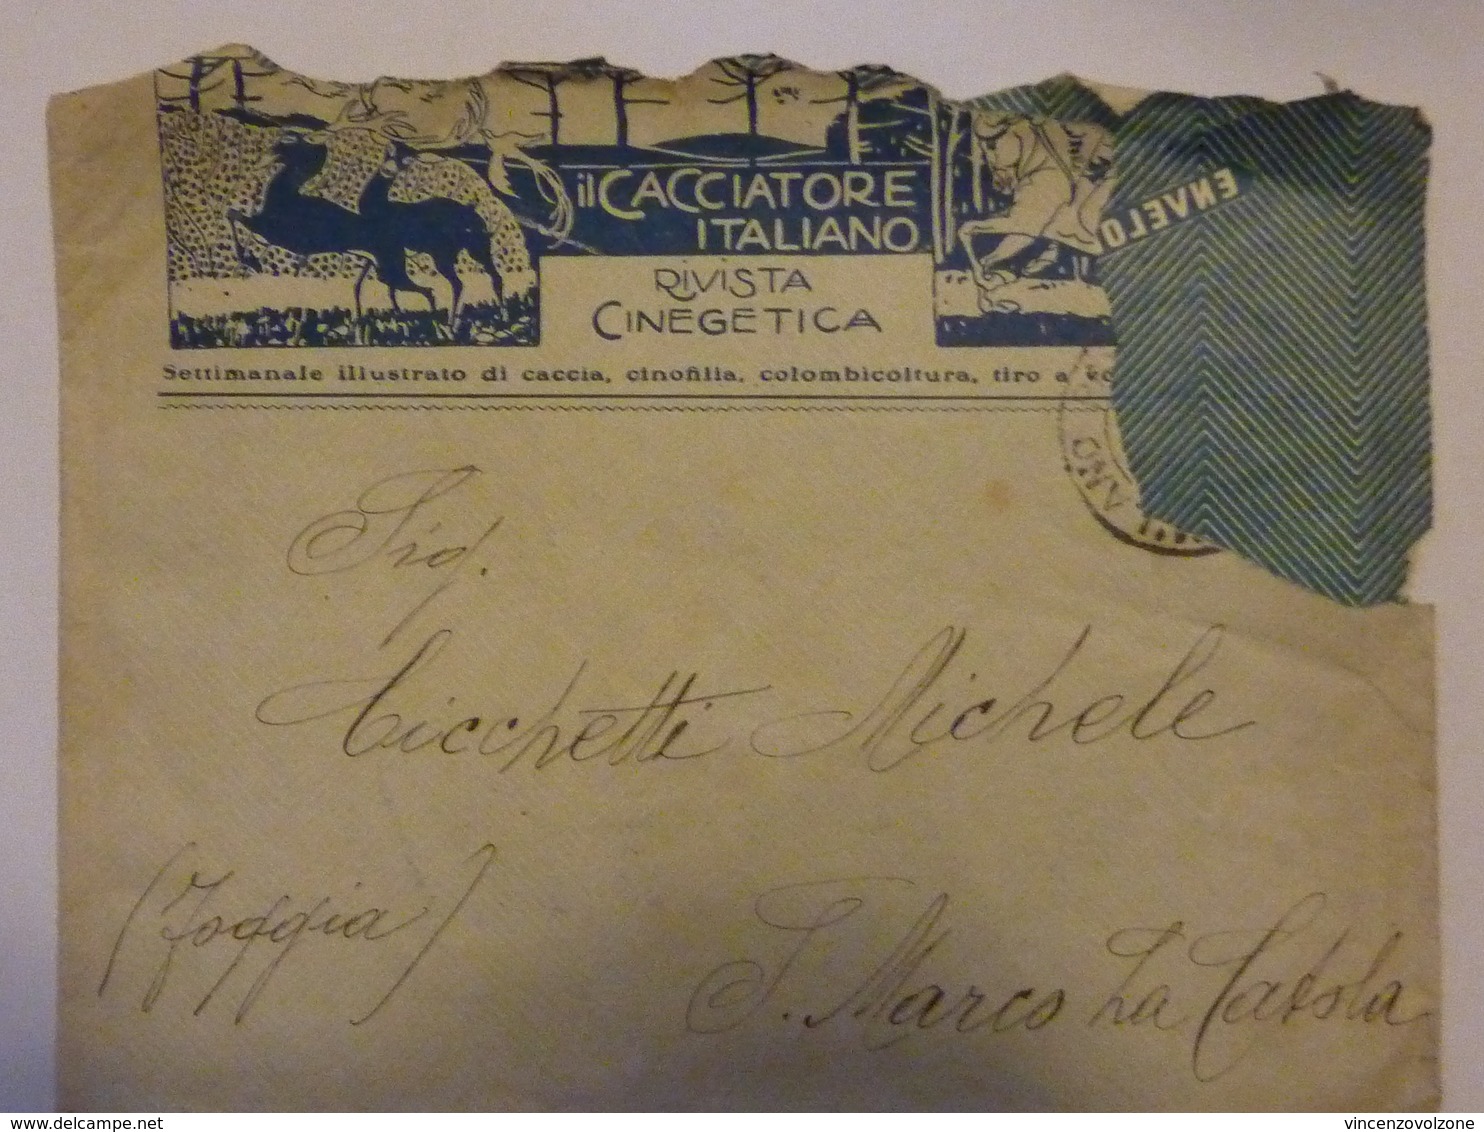 il CACCIATORE
ITALIANO
RIVISTA
CINEGETICA
ENVELO
Settimanale illustrato di caccia, cinofilia, colombicoltura, tiro a
MILANO
Sig.
Cicchetti Michele
(Foggia)
S. Marco La Catola
vincenzovolzone